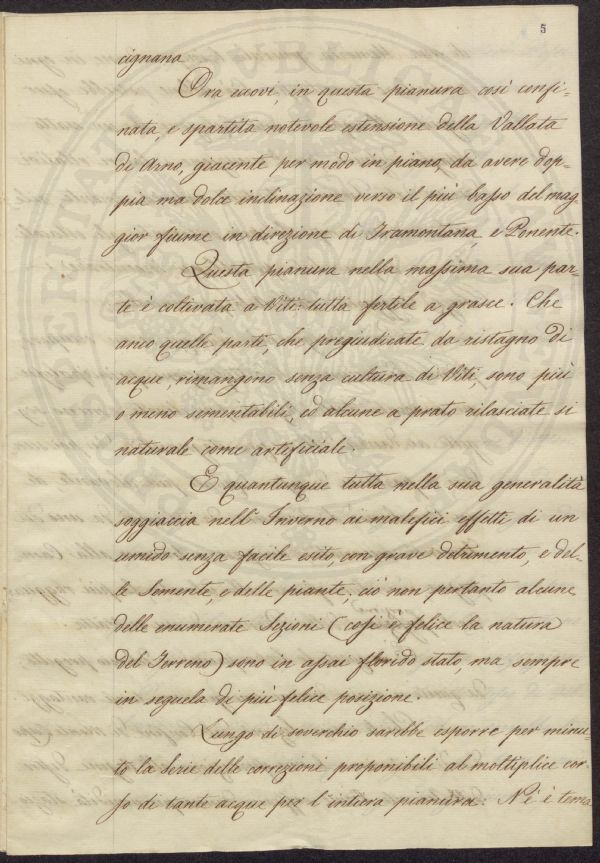 5
cignana
Ora eccovi, in questa pianura così confi-
nata, e spartita notevole estensione della Vallata
di Arno, giacente per modo in piano, da avere dop-
pia ma dolce inclinazione verso il più basso del mag
gior fiume in direzione di Tramontana, e Ponente.
Questa pianura nella massima sua par-
te è coltivata a Viti: tutta fertile a grasce. Che
anco quelle parti, che pregiudicate da ristagno di
acque, rimangono senza cultura di Viti, sono più
o meno sementabili, ed alcune a prato rilasciate sì
naturale come artificiale.
E quantunque tutta nella sua generalità
soggiaccia nell'Inverno ai malefici effetti di un
umido senza facile esito, con grave detrimento, e del-
le Semente, e delle piante; ciò non pertanto alcune
delle enumerate Sezioni (così è felice la natura
del Terreno) sono in assai florido stato, ma sempre
in seguela di più felice posizione.
Lungo di soverchio sarebbe esporre per minu-
to la Serie delle correzioni proponibili al moltiplice cor-
so di tante acque per l'intiera pianura: Nè è tema